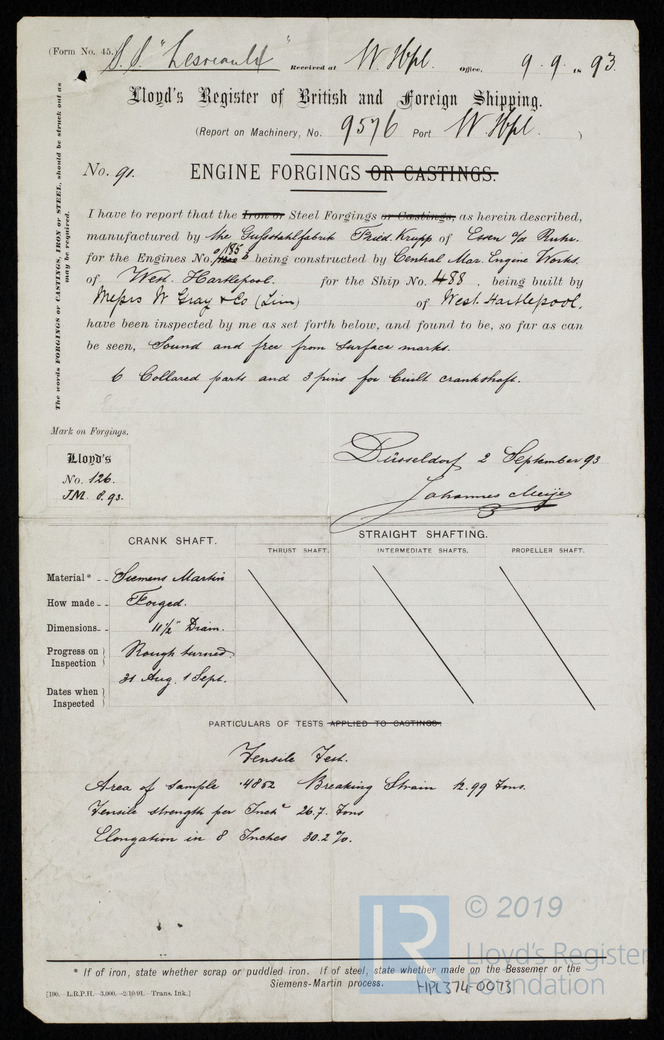 (Form No. 45.) S.S. "Lesreaulx" Received at W Hpl. Office, 9. 9. 18 93.
Lloyd's Register of British and Foreign Shipping.
(Report on Machinery, No. 9576 Port W Hpl. )
No. 91. ENGINE FORGINGS OR CASTINGS.
The words FORGINGS or CASTINGS, IRON or STEEL, should be struck out as
may be required.
I have to report that the Iron or Steel Forgings or Castings, as herein described,
manufactured by the Gußstahlfabrik Fried. Krupp of Essen a/d Ruhr.
for the Engines No. 185 being constructed by Central Mar. Engine Works.
of West. Hartlepool. for the Ship No. 488 , being built by
Messrs W Gray & Co (Lim) of West. Hartlepool,
have been inspected by me as set forth below, and found to be, so far as can
be seen, Sound and free from surface marks.
6 Collared parts and 3 pins for built crankshaft.
Mark on Forgings.
Lloyd's
No. 126.
JM. 8. 93.
Düsseldorf 2 September 93
Johannes Meijer
CRANK SHAFT. STRAIGHT SHAFTING.
THRUST SHAFT. INTERMEDIATE SHAFTS. PROPELLER SHAFT.
Material* - - Siemens Martin
How made - - Forged.
Dimensions - - 11½" Diam.
Progress on Inspection Rough turned
Dates when Inspected 31 Aug. 1 Sept.
PARTICULARS OF TESTS APPLIED TO CASTINGS.
Tensile Test.
Area of sample .4862 Breaking Strain 12.99 Tons.
Tensile strength per Inch² 26.7. Tons
Elongation in 8 Inches 30.2 %.
* If of iron, state whether scrap or puddled iron. If of steel, state whether made on the Bessemer or the
Siemens-Martin process.
HPL374-0073
[100.—L.R.P.H.—5,000.—2/10/91.—Trans. Ink.]
LR © 2019
Lloyd's Register
Foundation